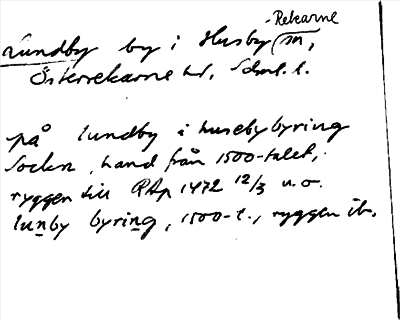 -Rekarne
Lundby by i Husby sn,
Österrekarne hd, Söml. l.
på lundby i husebybyring
Socken, hand från 1500-talet,
ryggen till RAp 1472 12/3 u.o.
lunby byring, 1500-t., ryggen ib.